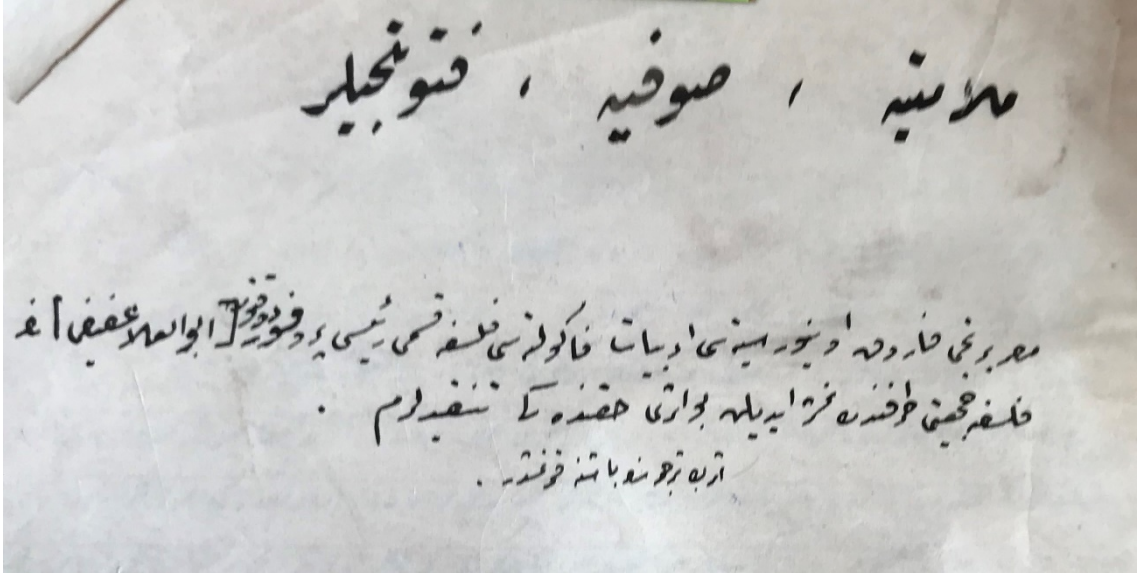 ملامتيه ، صوفيه ، فتوتجيلر
مصر برنجى فاروق اونيورسيته سى ادبيات فاكولته سى فلسفه قسمى رئيسى پروفسور دوقتور [ ابوالعلا عفيفى ] نڭ
فلسفه جمعيتى طرفندن نشر ايديلن بو اثرى حقنده كى تنقيدلرم .
اثرك ترجمه سى